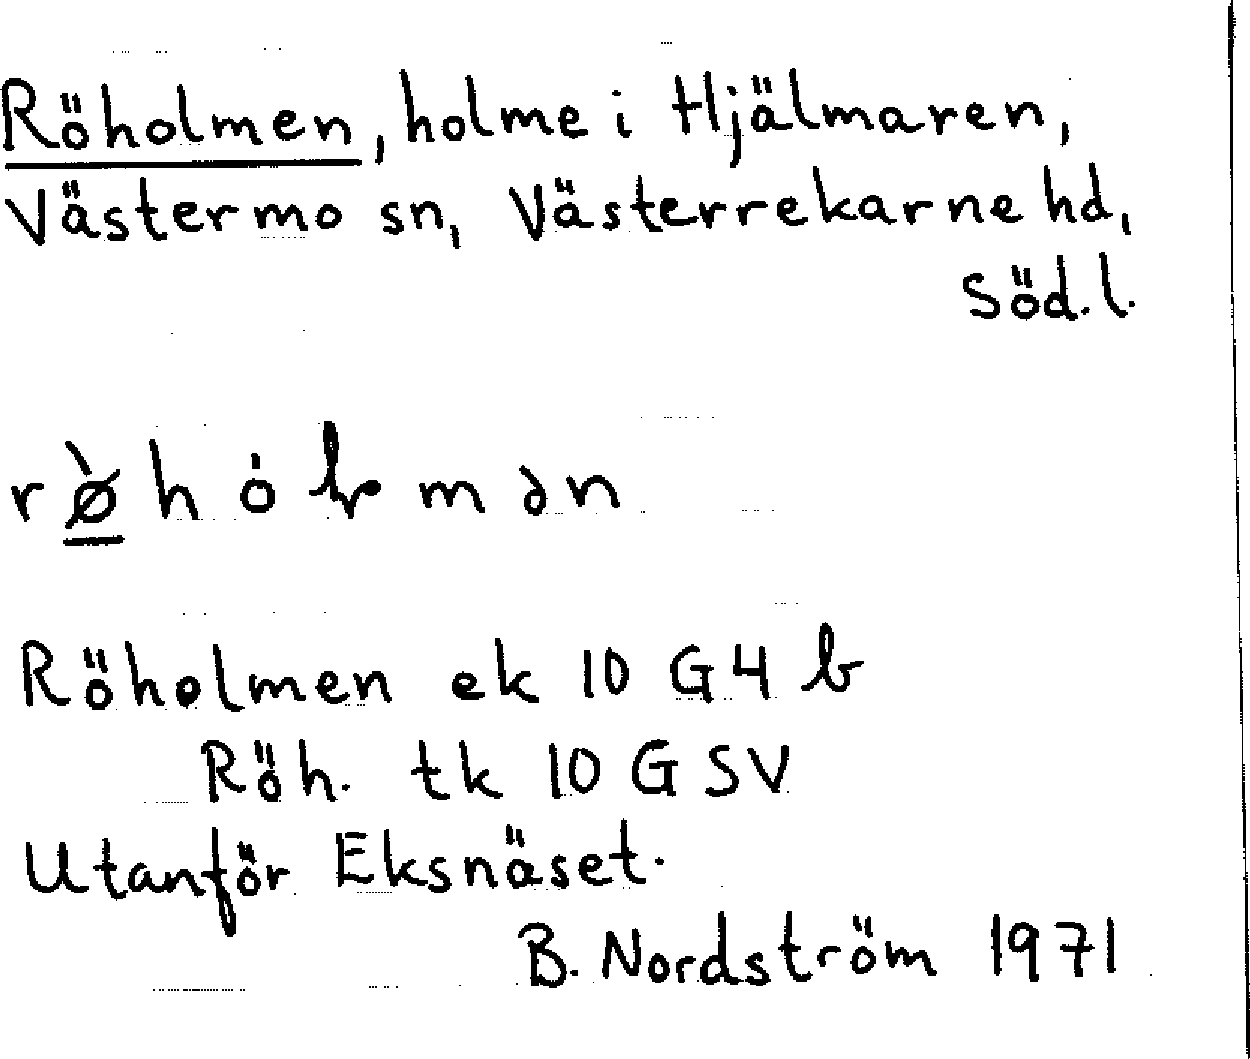 Röholmen, holme i Hjälmaren,
Västermo sn, Västerrekarne hd,
Söd. l.
Röholmen ek 10 G 4 b
Röh. tk 10 G SV
Utanför Eksnäset.
B. Nordström 1971